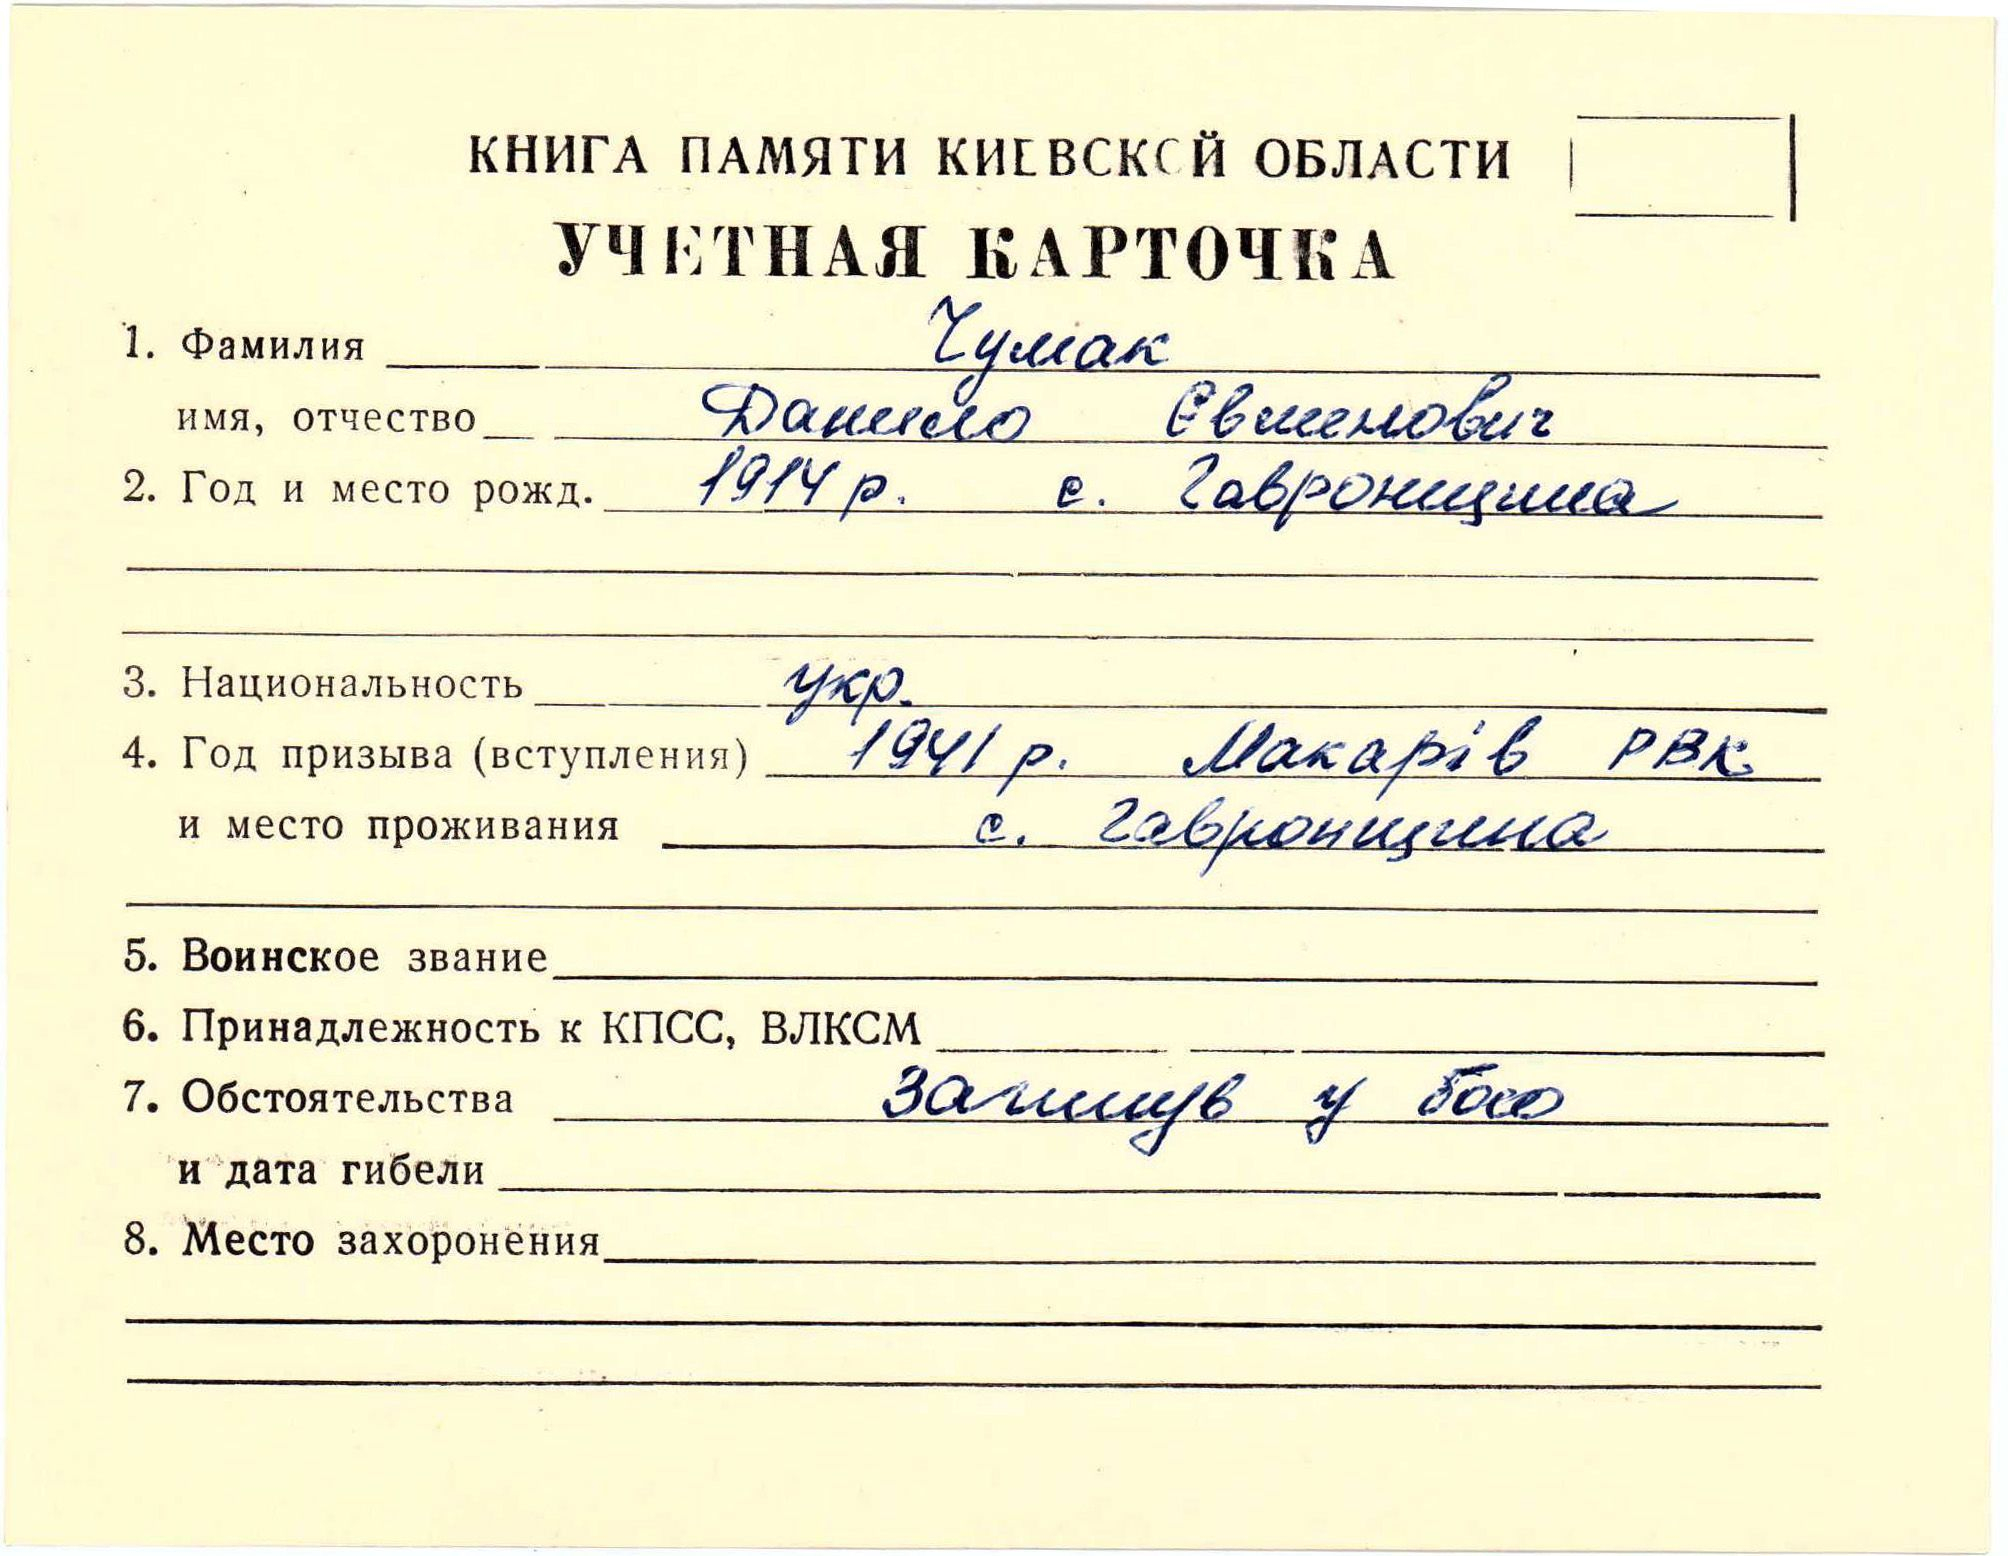 КНИГА ПАМЯТИ КИЕВСКОЙ ОБЛАСТИ
УЧЕТНАЯ КАРТОЧКА
1. Фамилия Чумак
имя, отчество Данило Євменович
2. Год и место рожд. 1914 р. с. Гавронщина
3. Национальность укр.
4. Год призыва (вступления) 1941 р. Макарів РВК
и место проживания с. Гавронщина
5. Воинское звание
6. Принадлежность к КПСС, ВЛКСМ
7. Обстоятельства Загинув у бою
и дата гибели
8. Место захоронения